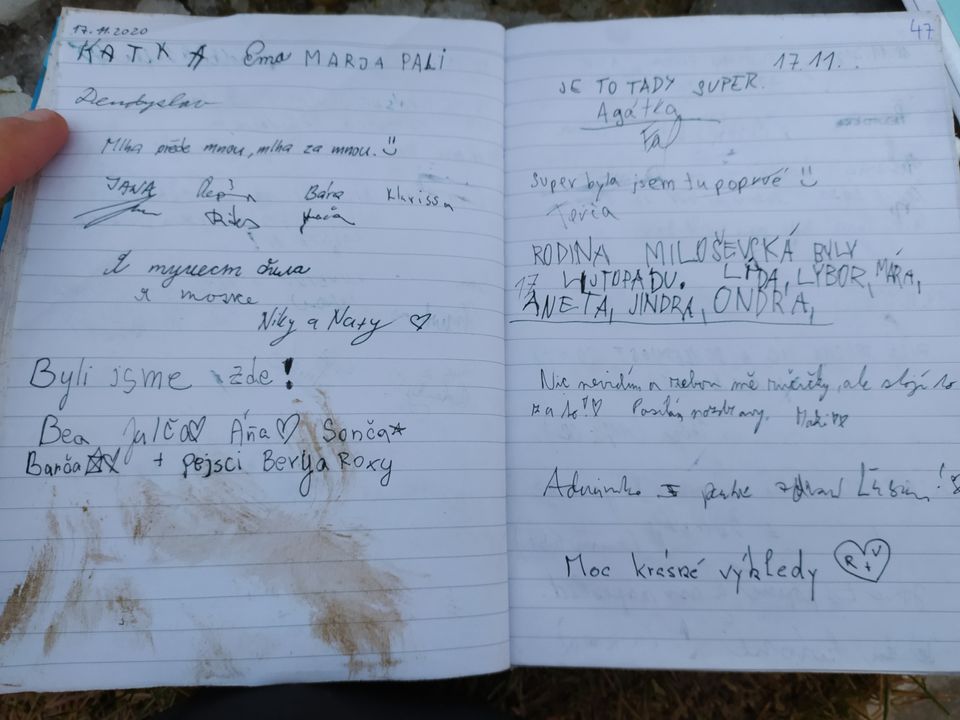 17.11.2020
KATKA Ema MARJA PALI
Mlha přede mnou, mlha za mnou. :)
JANA Bára Klarissa
Niky a Naty ♡
Byli jsme zde!
Bea, Julča♡ Áňa♡ Sonča☆
Barča☆♡ + pejsci Berry a Roxy
47
17.11.
JE TO TADY SUPER.
Agátka
super byla jsem tu poprvé :)
Terča
RODINA MILOŠEVSKÁ BYLY
17 LISTOPADU. LÍDA, LYBOR, MÁRA,
ANETA, JINDRA, ONDRA,
Nic nevidím a zebou mě ručičky, ale stojí to
za to!♡ Posílám pozdravy.
Moc krásné výhledy R+V